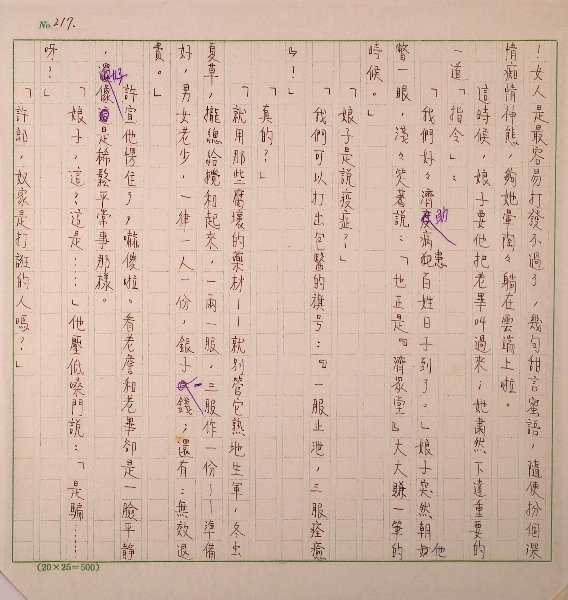 No. 217.
！女人是最容易打發不過了，幾句甜言蜜語，隨便扮個深
情痴情神態，夠她暈陶々躺在雲端上啦。
這時候，娘子要他把老畢叫過來；她肅然下達重要的
一道「指令」：
「我們好々濟助病患百姓日子到了。」娘子突然朝他
瞥一眼，淺々笑著說：「也正是『濟眾堂』大大賺一筆的
時候。」
「娘子是說疫症？」
「我們可以打出包醫的旗号：『一服止泄，三服痊癒
』！」
「真的？」
「就用那些腐壞的藥材——就別管它熟地生軍，冬虫
夏草，攏總給攪和起來，一兩一服，三服作一份——準備
好，男女老少，一律一人一份，銀子一錢；還有：無效退
費。」
許宣他愣住了，嚇傻啦。看老詹和老畢卻是一臉平靜
，還好像是稀鬆平常事那樣。
「娘子，這？這是……」他壓低嗓門說：「是騙……
呀？」
「許郎，奴家是打誑的人嗎？」
(20×25=500)